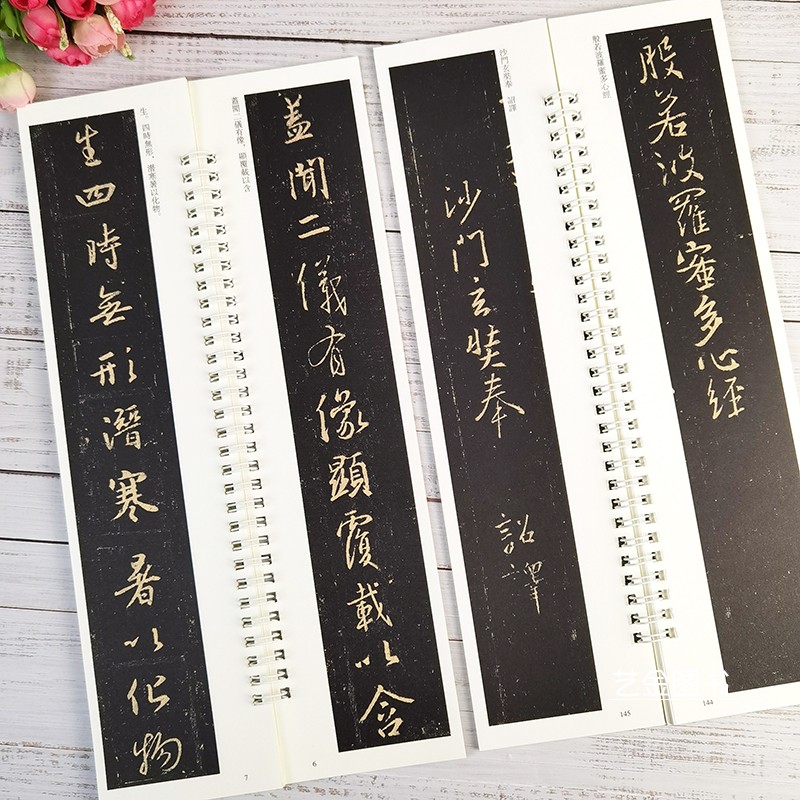 蓋聞二儀有像，顯覆載以含
蓋聞二儀有像顯覆載以含
6
生。四時無形，潛寒暑以化物。
生四時無形潛寒暑以化物
7
般若波羅蜜多心經
般若波羅蜜多心經
144
沙門玄奘奉 詔譯
沙門玄奘奉 詔譯
145